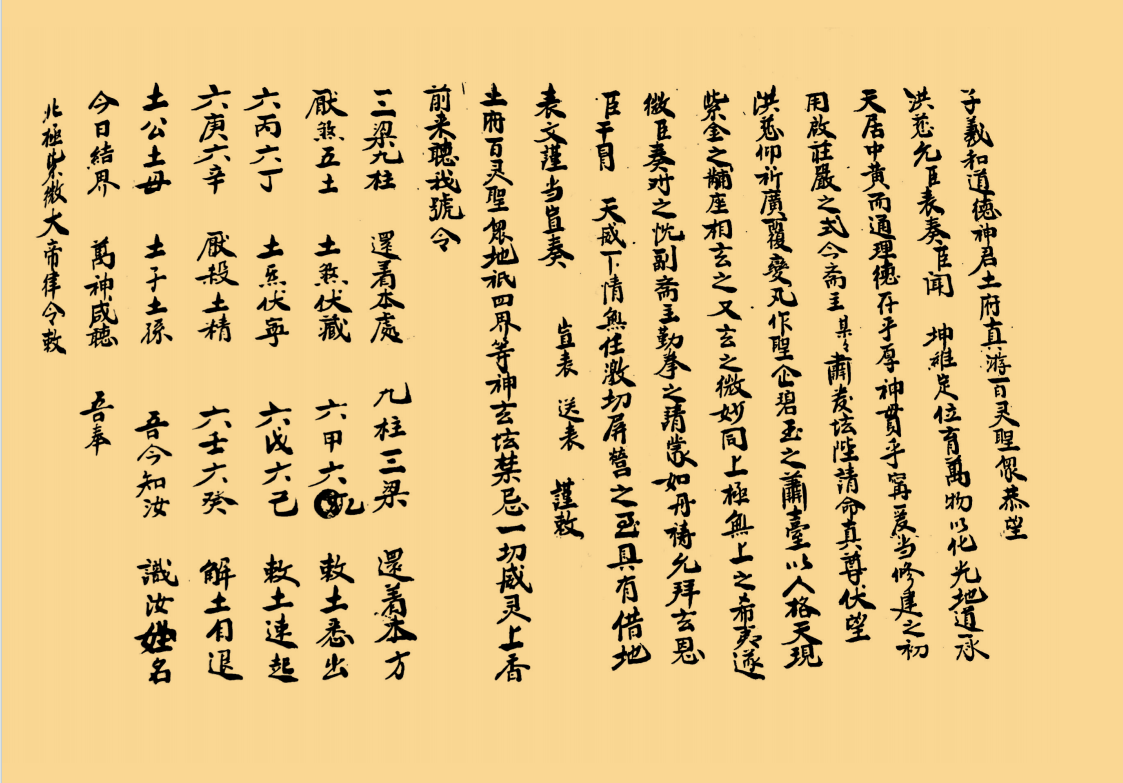 子義和道德神君土府真游百灵聖眾恭望
洪慈允臣表奏臣聞 坤維定位育萬物以化光地道承
天居中黄而通理德存乎厚神貫乎寗爰当修建之初
用啟莊嚴之式今斋主某々肅发坛陛請命真尊伏望
洪慈仰祈廣覆变凡作聖企碧玉之蕭臺以人格天現
紫金之黼座相玄之又玄之微妙同上極無上之希夷遂
微臣奏对之忱副斋主勤拳之請蒙如丹禱允拜玄恩
臣干冒 天威下情無任激切屏營之至具有借地
表文謹当宣奏 宣表 送表 謹敕
土府百灵聖眾地祇四界等神玄坛禁忌一切威灵上香
前来聽我號令
三梁九柱 還着本處 九柱三梁 還着本方
厭煞五土 土煞伏藏 六甲六乙 敕土悉出
六丙六丁 土炁伏寧 六戊六己 敕土速起
六庚六辛 厭殺土精 六壬六癸 解土自退
土公土母 土子土孫 吾今知汝 識汝姓名
今日結界 萬神咸聽 吾奉
北極紫微大帝律令敕